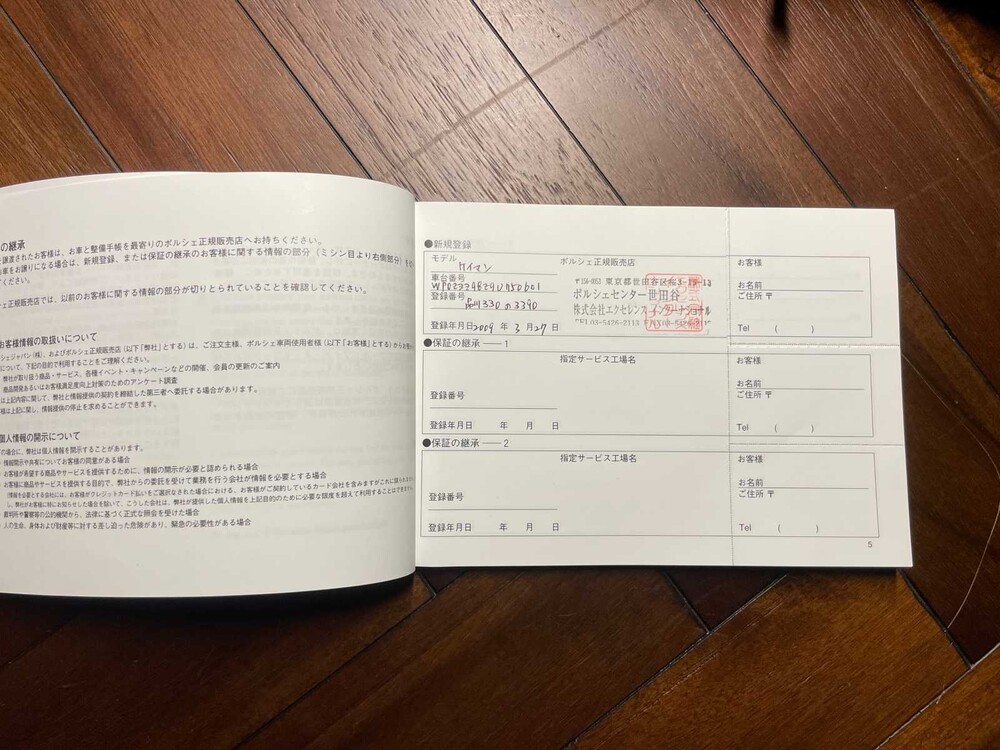 の継承
を譲渡されたお客様は、お車と整備手帳を最寄りのポルシェ正規販売店へお持ちください。
お車をお譲りになる場合は、新規登録、または保証の継承のお客様に関する情報の部分（ミシン目より右側部分）を
ください。
シェ正規販売店では、以前のお客様に関する情報の部分が切りとられていることを確認してください。
お客様情報の取扱いについて
シェジャパン（株）、およびポルシェ正規販売店（以下「弊社」とする）は、ご注文主様、ポルシェ車両使用者様（以下「お客様」とする）からお
について、下記の目的で利用することをご理解ください。
弊社が取り扱う商品・サービス、各種イベント・キャンペーンなどの開催、会員の更新のご案内
商品開発あるいはお客様満足度向上対策のためのアンケート調査
は上記内容に関して、弊社と情報提供の契約を締結した第三者へ委託する場合があります。
様は上記に関し、情報提供の停止を求めることができます。
個人情報の開示について
の場合に、弊社は個人情報を開示することがあります。
情報開示や共有についてお客様の同意がある場合
お客様が希望する商品やサービスを提供するために、情報の開示が必要と認められる場合
お客様に商品やサービスを提供する目的で、弊社からの委託を受けて業務を行う会社が情報を必要とする場合
（情報を必要とする会社には、お客様がクレジットカード払いをご選択なされた場合における、お客様がご契約しているカード会社を含みますがこれに限られま
し、弊社がお客様に特にお知らせした場合を除いて、こうした会社は、弊社が提供した個人情報を上記目的のために必要な限度を超えて利用することはできません
裁判所や警察等の公的機関から、法律に基づく正式な照会を受けた場合
人の生命、身体および財産等に対する差し迫った危険があり、緊急の必要性がある場合
●新規登録
モデル
ケイマン
車台番号
登録番号
品川330 の 3390
登録年月日 2009 年 3 月 27 日
ポルシェ正規販売店
東京都世田谷区
ポルシェセンター世田谷
株式会社エクセレンス インターナショナル
TEL03-5426-2113
お客様
お名前
ご住所 〒
Tel （ ）
●保証の継承 — 1
指定サービス工場名
登録番号
登録年月日 年 月 日
お客様
お名前
ご住所 〒
Tel （ ）
●保証の継承 — 2
指定サービス工場名
登録番号
登録年月日 年 月 日
お客様
お名前
ご住所 〒
Tel （ ）
5